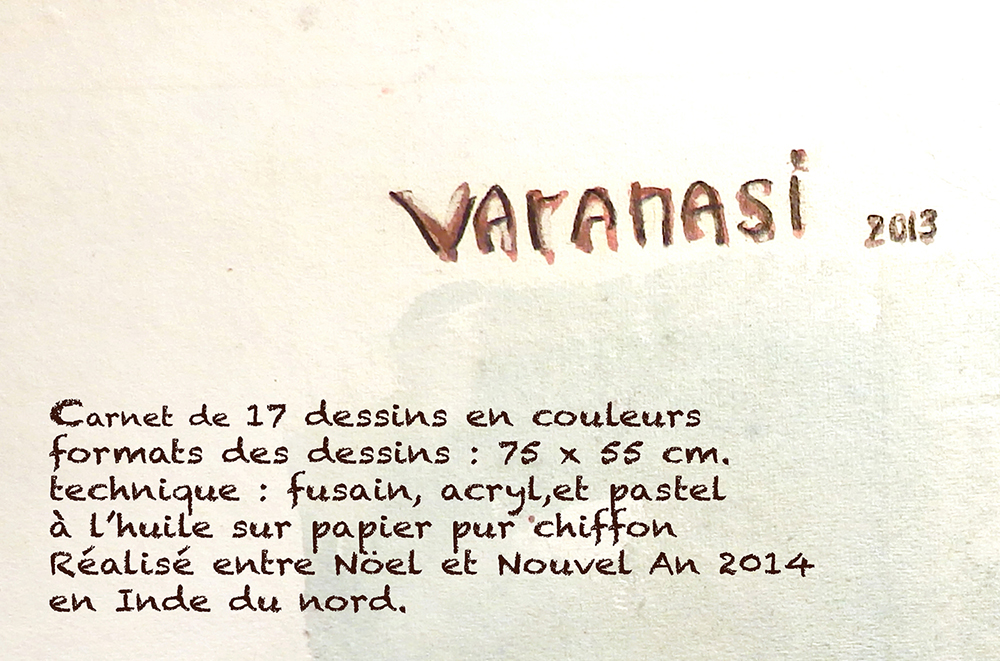 varanasi 2013
Carnet de 17 dessins en couleurs
formats des dessins : 75 x 55 cm.
technique : fusain, acryl,et pastel
à l'huile sur papier pur chiffon
Réalisé entre Nöel et Nouvel An 2014
en Inde du nord.